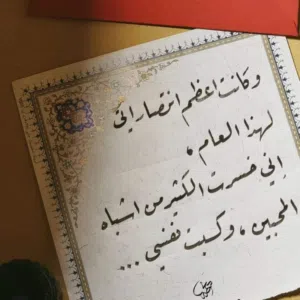 وكانت اعظم انتصاراتي
لهذا العام ،
إني خسرت الكثير من اشباه
المحبين ، وكسبت نفسي ...